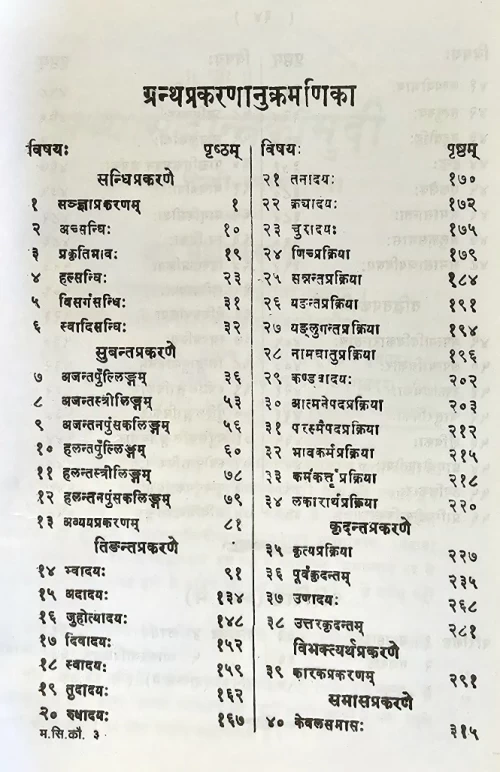 ग्रन्थप्रकरणानुक्रमणिका
विषयः पृष्ठम्
सन्धिप्रकरणे
१ सञ्ज्ञाप्रकरणम् १
२ अच्सन्धिः १०
३ प्रकृतिभावः १९
४ हल्सन्धिः २३
५ विसर्गसन्धिः ३१
६ स्वादिसन्धिः ३२
सुबन्तप्रकरणे
७ अजन्तपुँल्लिङ्गम् ३६
८ अजन्तस्त्रीलिङ्गम् ५३
९ अजन्तनपुंसकलिङ्गम् ५६
१० हलन्तपुँल्लिङ्गम् ६०
११ हलन्तस्त्रीलिङ्गम् ७८
१२ हलन्तनपुंसकलिङ्गम् ७९
१३ अव्ययप्रकरणम् ८१
तिङन्तप्रकरणे
१४ भ्वादयः ९१
१५ अदादयः १३४
१६ जुहोत्यादयः १४८
१७ दिवादयः १५२
१८ स्वादयः १५९
१९ तुदादयः १६२
२० रुधादयः १६७
म.सि.कौ. ३
विषयः पृष्ठम्
२१ तनादयः १७०
२२ क्रयादयः १७२
२३ चुरादयः १७५
२४ णिच्प्रक्रिया १७९
२५ सन्नन्तप्रक्रिया १८४
२६ यङन्तप्रक्रिया १९१
२७ यङ्लुगन्तप्रक्रिया १९४
२८ नामधातुप्रक्रिया १९६
२९ कण्ड्वादयः २०२
३० आत्मनेपदप्रक्रिया २०३
३१ परस्मैपदप्रक्रिया २१२
३२ भावकर्मप्रक्रिया २१५
३३ कर्मकर्तृप्रक्रिया २१८
३४ लकारार्थप्रक्रिया २२०
कृदन्तप्रकरणे
३५ कृत्यप्रक्रिया २२७
३६ पूर्वकृदन्तम् २३५
३७ उणादयः २६८
३८ उत्तरकृदन्तम् २८१
विभक्त्यर्थप्रकरणे
३९ कारकप्रकरणम् २९१
समासप्रकरणे
४० केवलसमासः ३१५